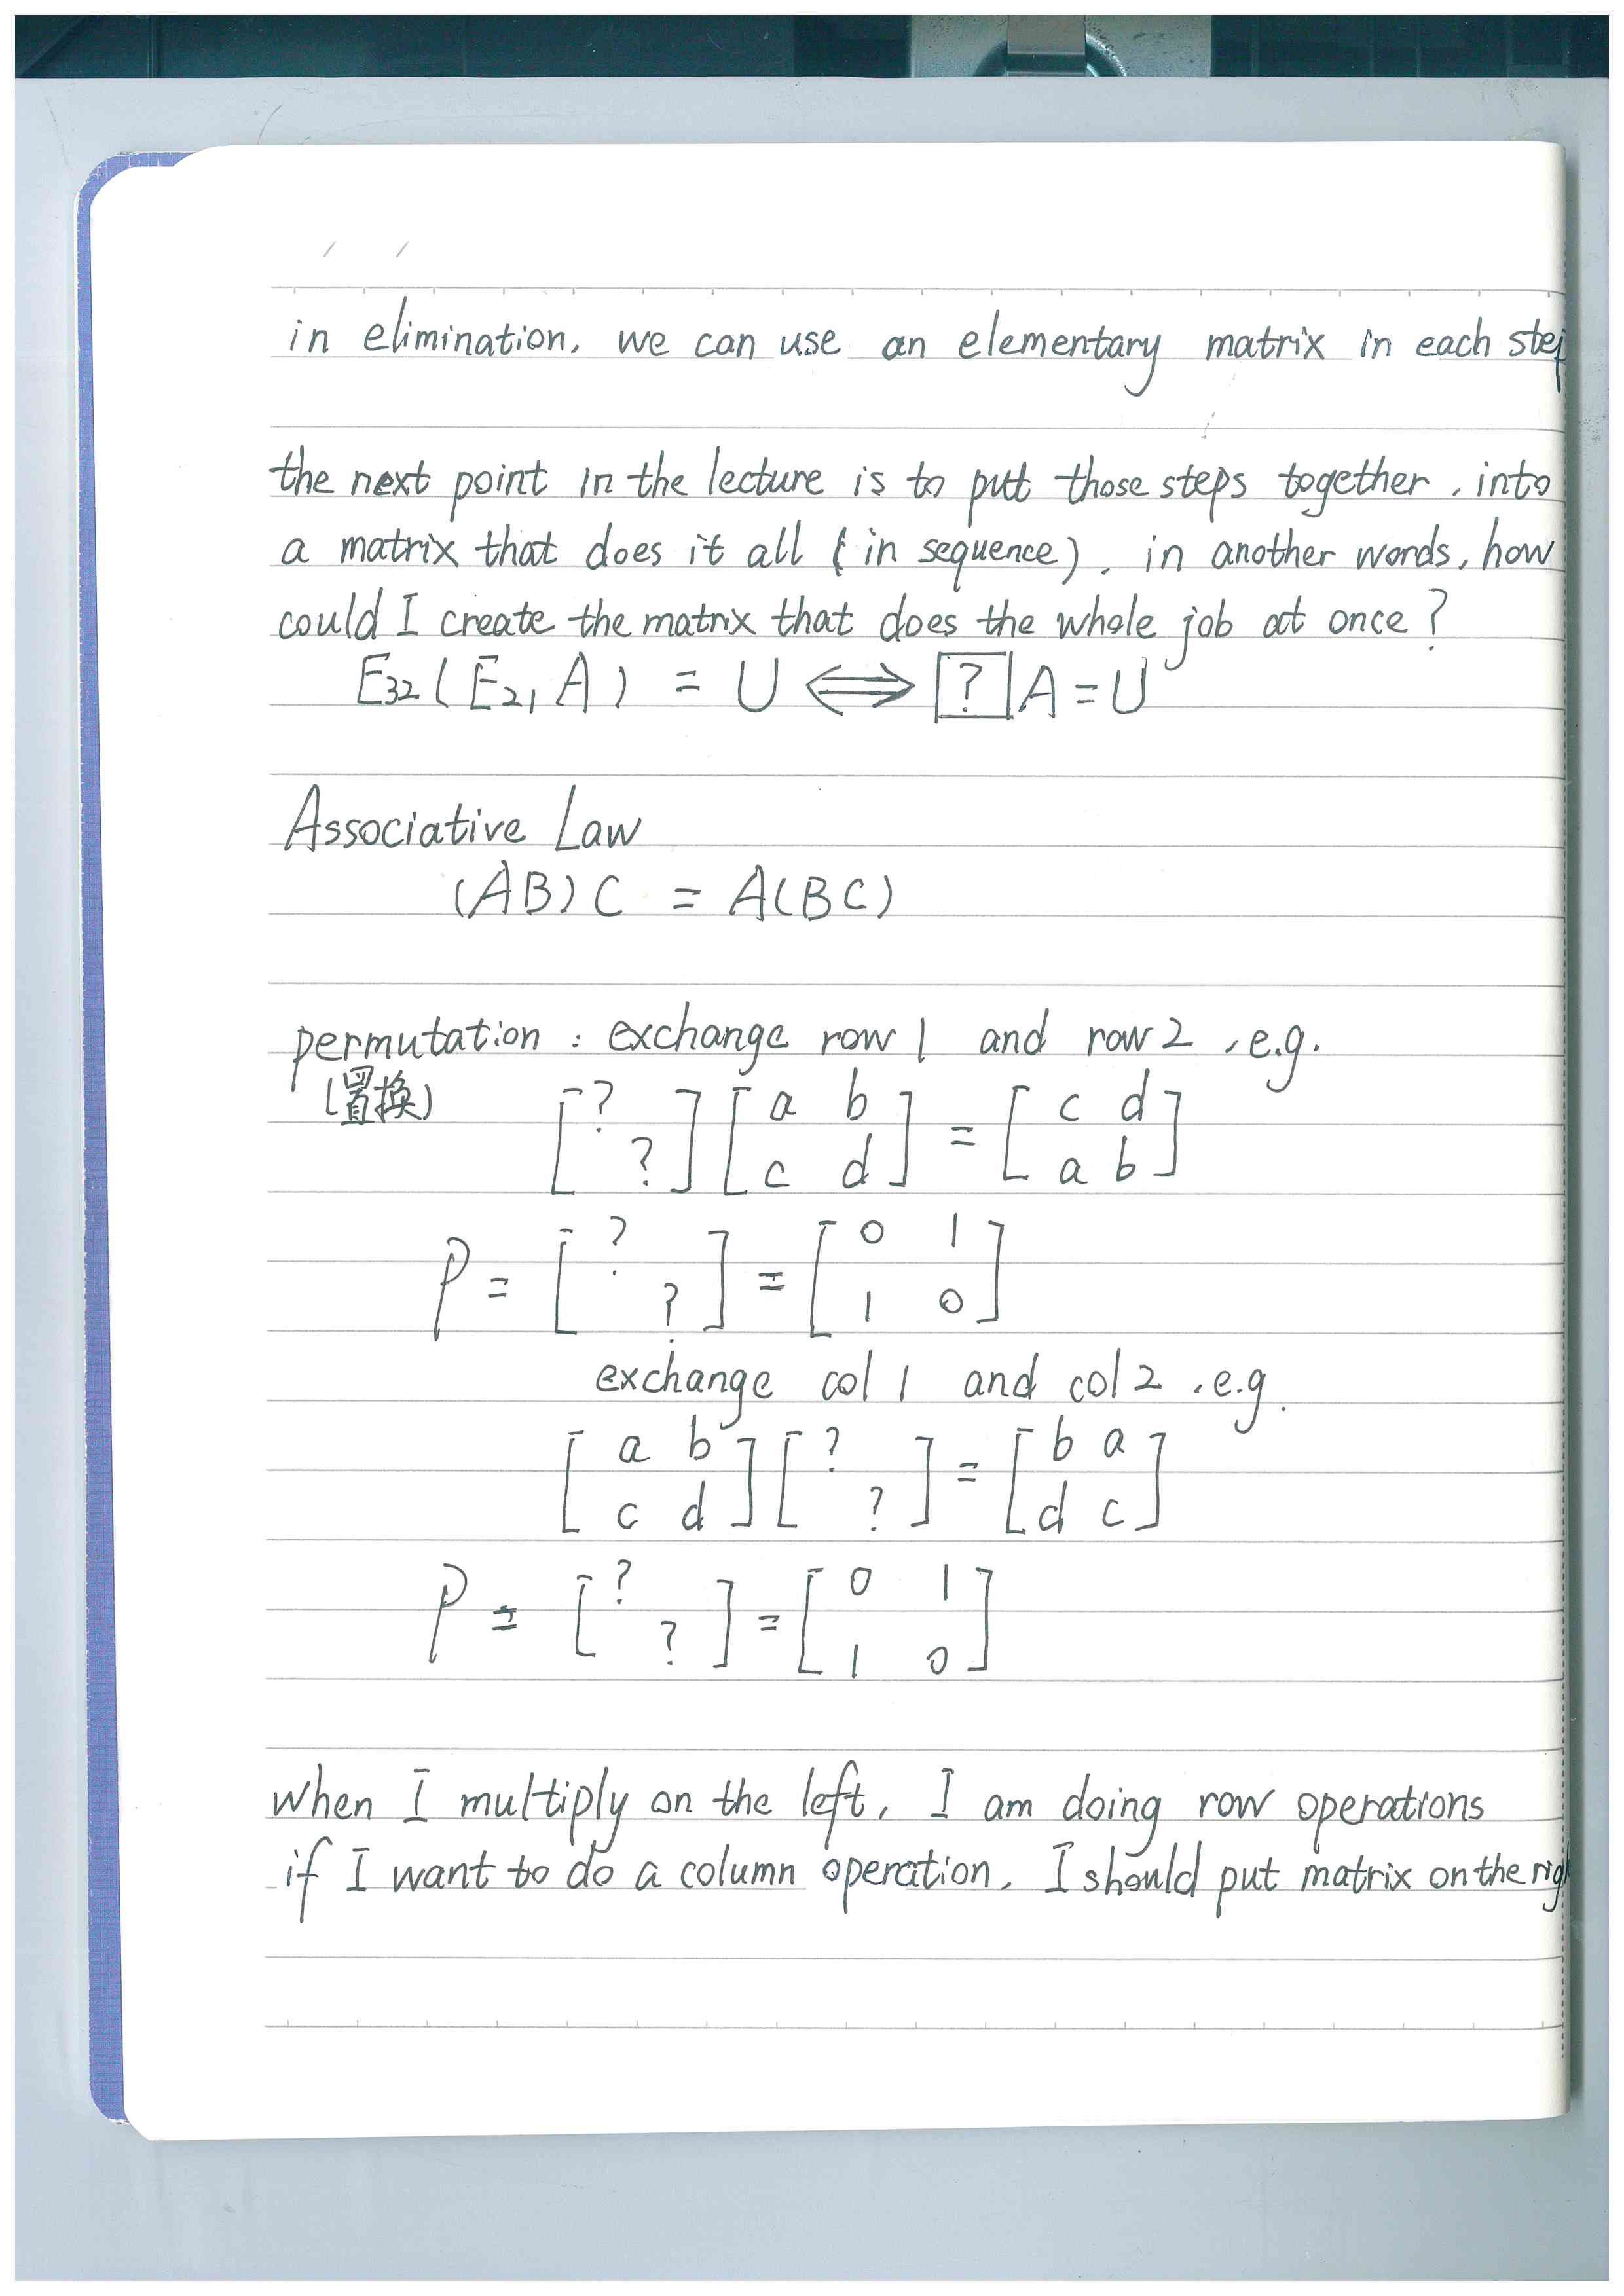 in elimination, we can use an elementary matrix in each step
the next point in the lecture is to put those steps together, into
a matrix that does it all (in sequence). in another words, how
could I create the matrix that does the whole job at once?
E₃₂(E₂₁A) = U ⟺ [?]A = U
Associative Law
(AB)C = A(BC)
permutation: exchange row 1 and row 2, e.g.
(置换)
[? ?][a b; c d] = [c d; a b]
P = [? ?] = [0 1; 1 0]
exchange col 1 and col 2, e.g.
[a b; c d][? ?] = [b a; d c]
P = [? ?] = [0 1; 1 0]
when I multiply on the left, I am doing row operations
if I want to do a column operation, I should put matrix on the rig